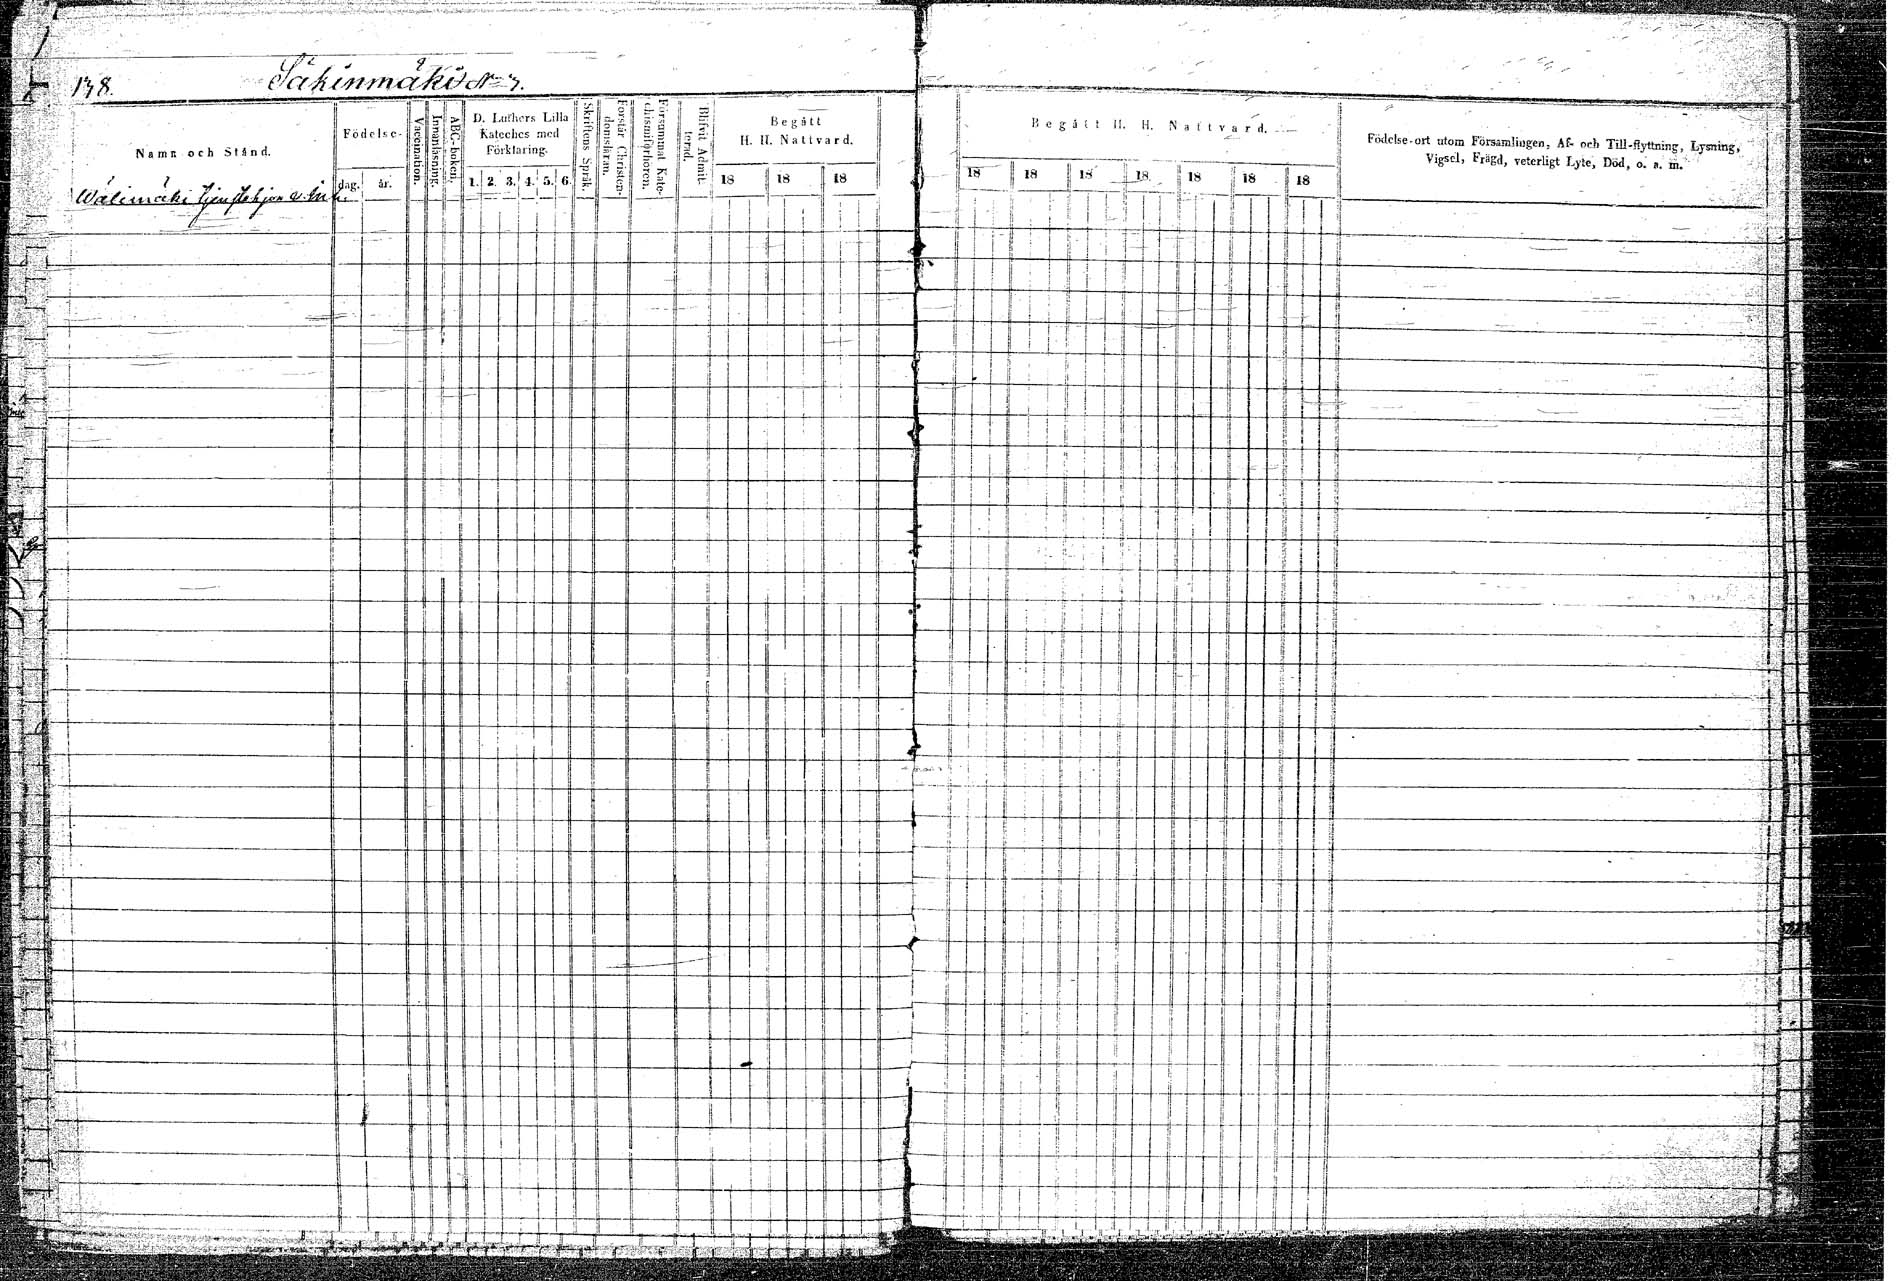 178. Säkinmäki No 7.
Namn och Stånd.
Födelse-
dag. år.
Vaccination.
Innanläsning.
ABC-boken.
D. Luthers Lilla
Kateches med
Förklaring.
1. 2. 3. 4. 5. 6.
Skriftens Språk.
Förstår Christen-
domsläran.
Försummat Kate-
chismiförhören.
Blifvit Admit-
terad.
Begått
H. H. Nattvard.
18 18 18
Begått H. H. Nattvard.
18 18 18 18 18 18 18
Födelse-ort utom Församlingen, Af- och Till-flyttning, Lysning,
Vigsel, Frägd, veterligt Lyte, Död, o. a. m.
Wälimäki tjenstehjon